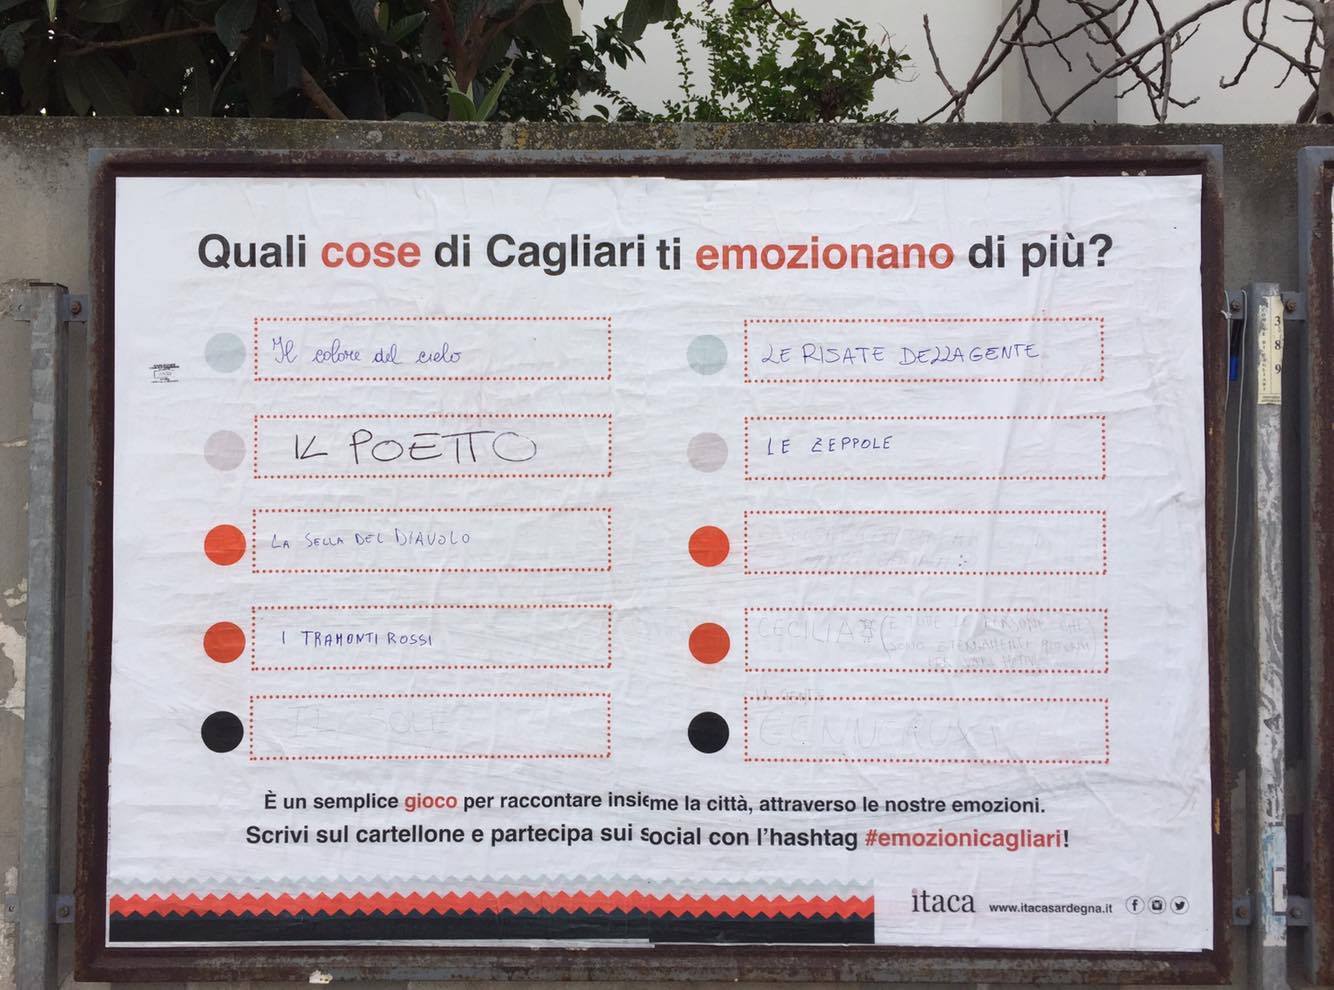 Quali cose di Cagliari ti emozionano di più?
Il colore del cielo
IL POETTO
LA SELLA DEL DIAVOLO
I TRAMONTI ROSSI
IL SOLE
LE RISATE DELLA GENTE
LE ZEPPOLE
CECILIA
(E TUTTE LE PERSONE CHE
SONO ETERNAMENTE
LA GENTE
È un semplice gioco per raccontare insieme la città, attraverso le nostre emozioni.
Scrivi sul cartellone e partecipa sui social con l'hashtag #emozionicagliari!
itaca www.itacasardegna.it
3
8
9